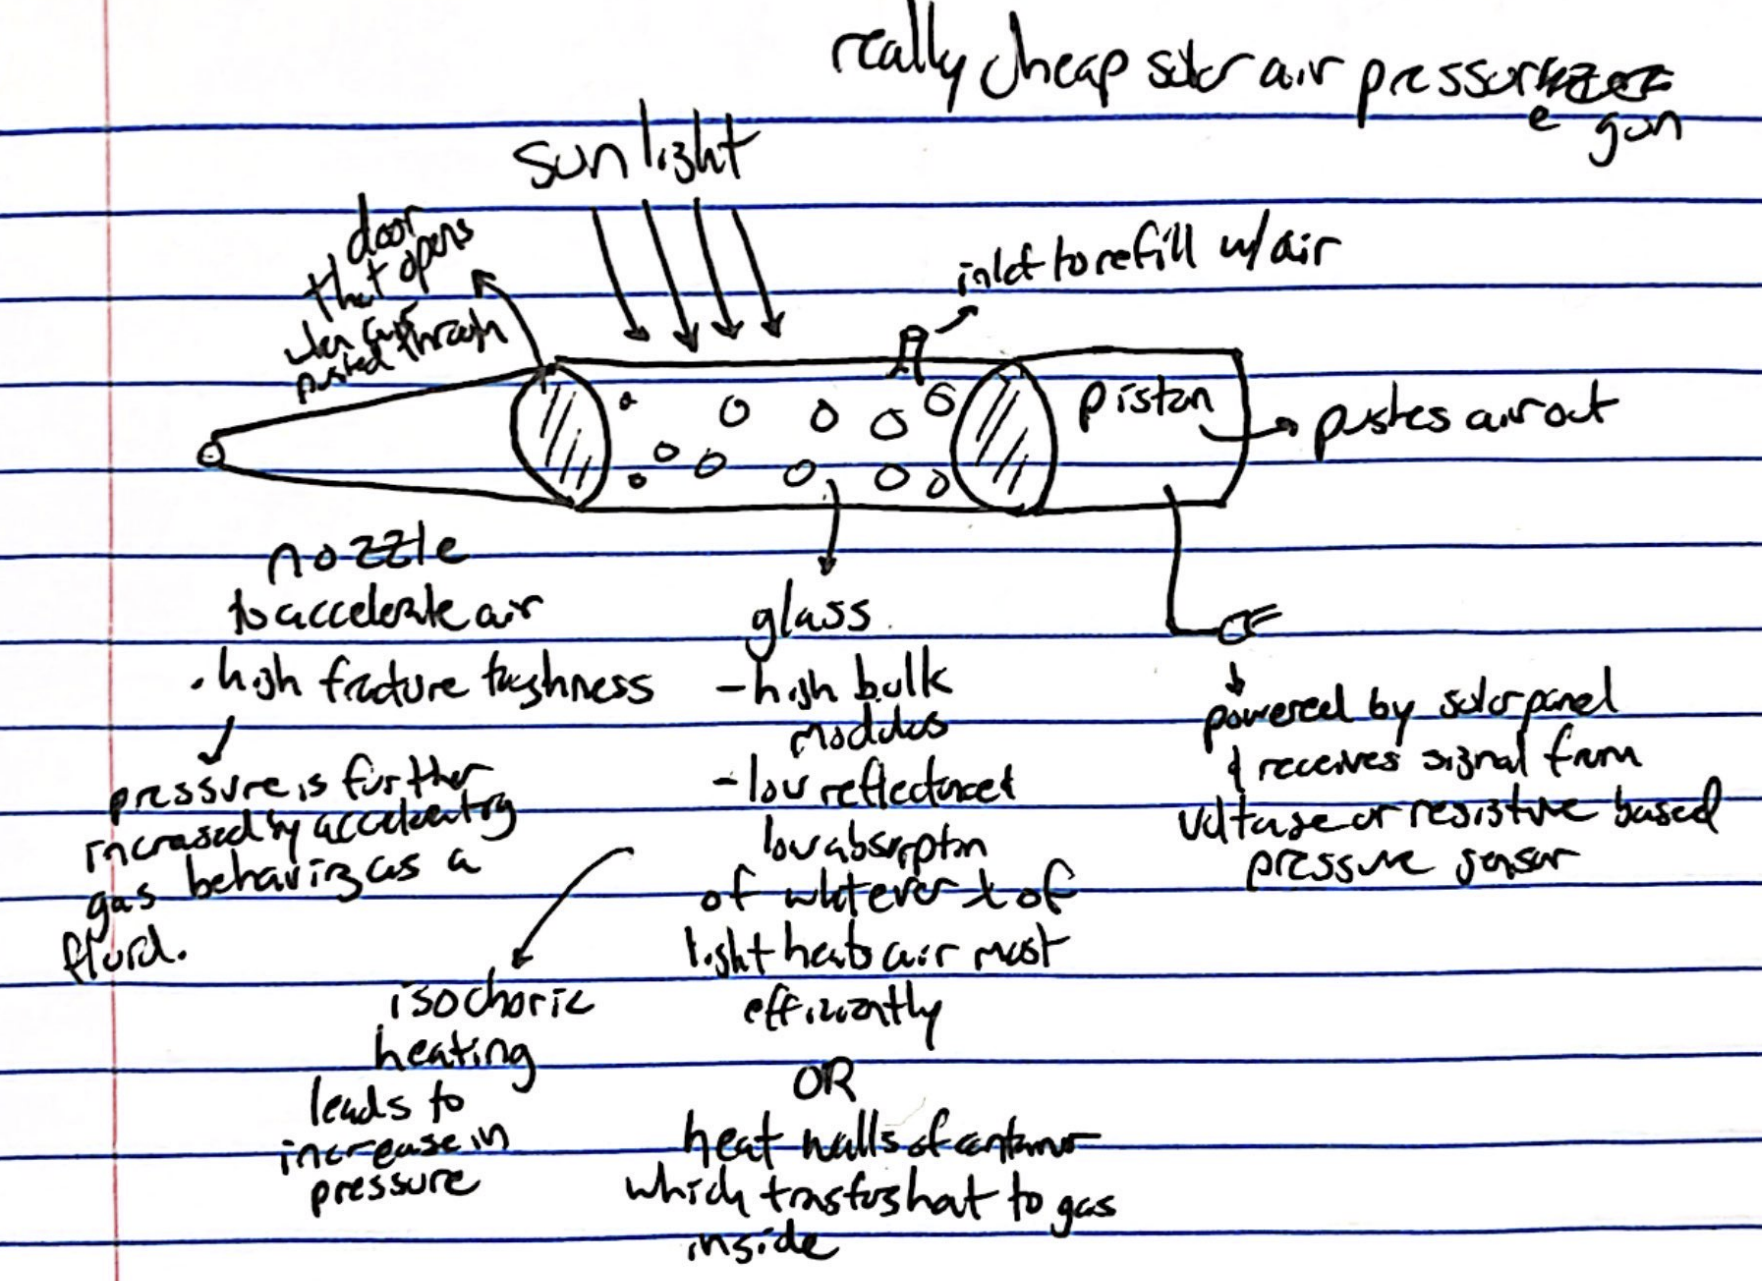 really cheap solar air pressure
gun
sunlight
door
that opens
when air
pushed through
inlet to refill w/ air
piston
pushes air out
nozzle
to accelerate air
. high fracture toughness
pressure is further
increased by accelerating
gas behaving as a
fluid.
glass
- high bulk
modulus
- low reflectance &
low absorption
of whatever λ of
light heats air most
efficiently
OR
heat walls of container
which transfers heat to gas
inside
isochoric
heating
leads to
increase in
pressure
powered by solar panel
& receives signal from
voltage or resistive based
pressure sensor